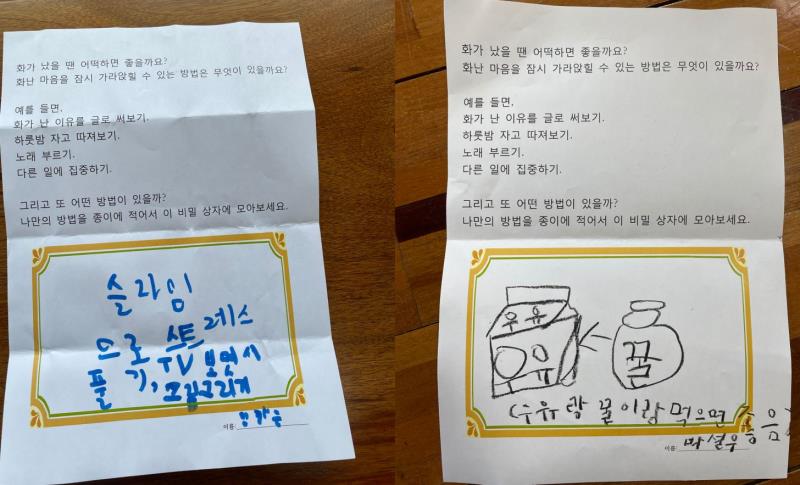 화가 났을 땐 어떡하면 좋을까요?
화난 마음을 잠시 가라앉힐 수 있는 방법은 무엇이 있을까요?
예를 들면.
화가 난 이유를 글로 써보기.
하룻밤 자고 따져보기.
노래 부르기.
다른 일에 집중하기.
그리고 또 어떤 방법이 있을까?
나만의 방법을 종이에 적어서 이 비밀 상자에 모아보세요.
슬라임
으로 스트레스
풀기, TV
그림그리기
이름:
화가 났을 땐 어떡하면 좋을까요?
화난 마음을 잠시 가라앉힐 수 있는 방법은 무엇이 있을까요?
예를 들면.
화가 난 이유를 글로 써보기.
하룻밤 자고 따져보기.
노래 부르기.
다른 일에 집중하기.
그리고 또 어떤 방법이 있을까?
나만의 방법을 종이에 적어서 이 비밀 상자에 모아보세요.
우유
우유
꿀
(우유랑 꿀이랑 먹으면 좋음)
이름: 마설우